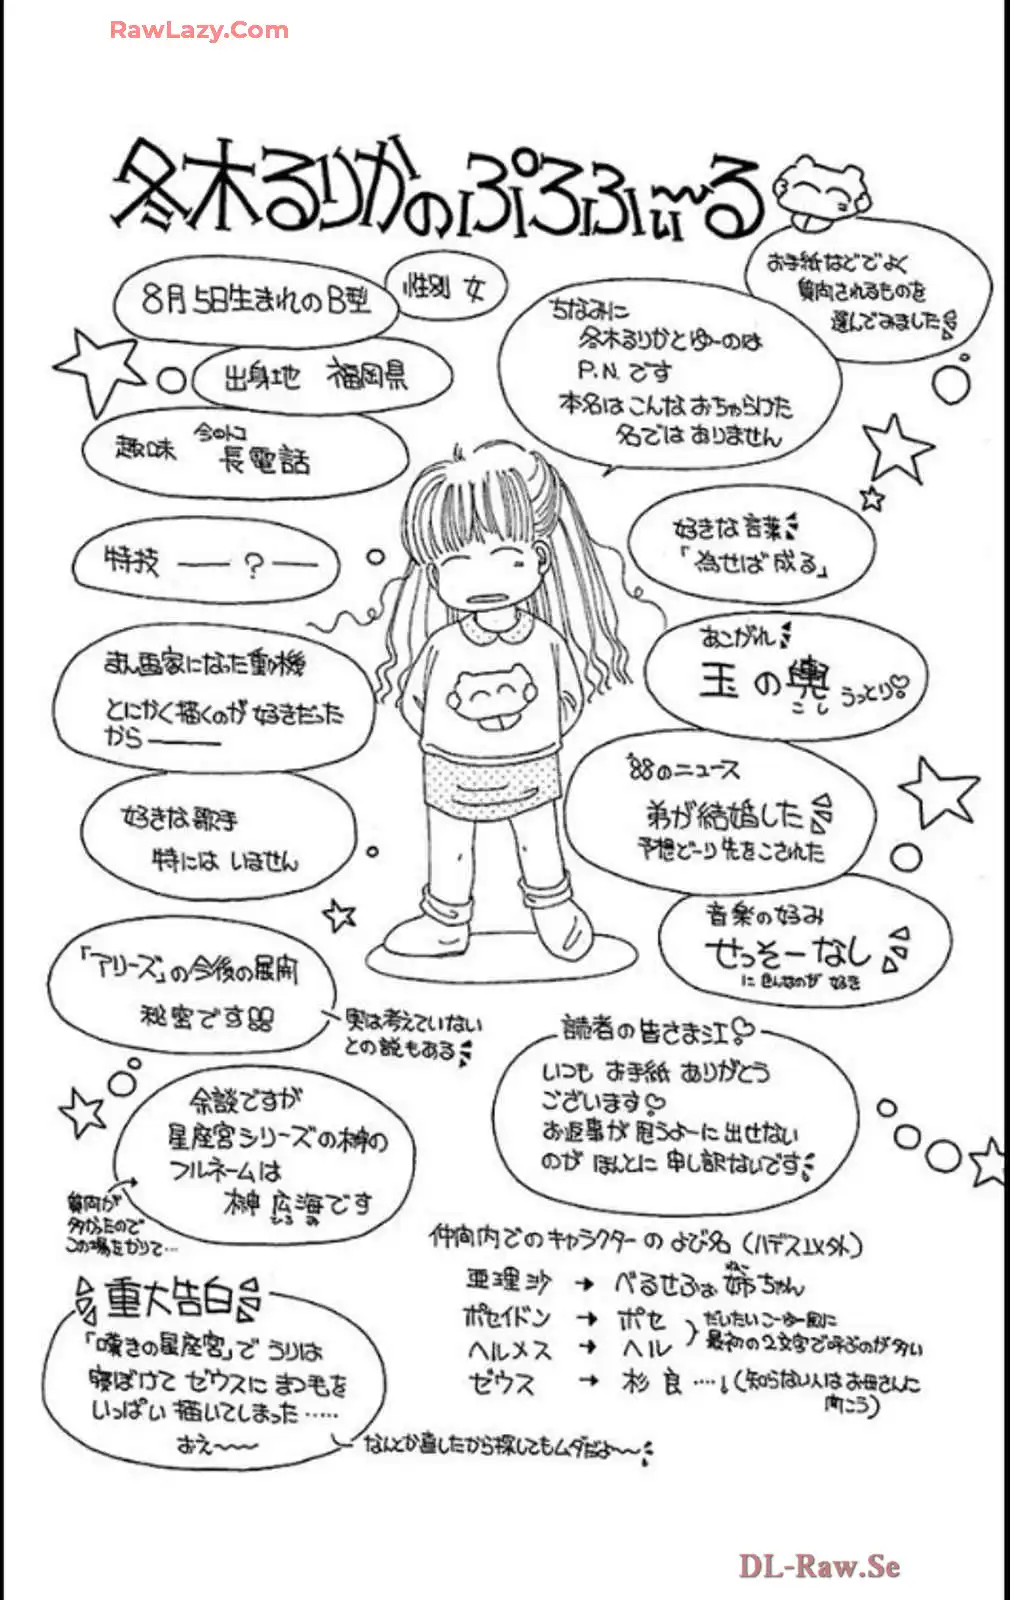 RawLazy.Com
冬木るりかのぷろふぃ〜る
お手紙などでよく
質問されるものを
選んでみました
8月5日生まれのB型
性別 女
出身地 福岡県
趣味 今のトコ
長電話
特技 ― ? ―
まん画家になった動機
とにかく描くのが 好きだった
から―――
好きな歌手
特には いません
「アリーズ」の今後の展開
秘密です!!
実は考えていない
との説もある
余談ですが
星座宮シリーズの榊の
フルネームは
榊 広海です
ひろ み
質問が
多かったので
この場をかりて…
重大告白
「嘆きの星座宮」で うりは
寝ぼけて ゼウスに まつ毛を
いっぱい 描いてしまった……
おえ〜〜
なんとか直したから探してもムダだよ〜〜
ちなみに
冬木るりかとゆーのは
P.N.です
本名は こんな おちゃらけた
名では ありません
好きな 言葉
「為せば 成る」
あこがれ
玉の輿 うっとり♡
こし
'88のニュース
弟が結婚した
予想どーり 先をこされた
音楽の好み
せっそーなし
に 色んなのが 好き
読者の皆さま江♡
いつも お手紙 ありがとう
ございます♡
お返事が 思うよーに 出せない
のが ほんとに 申し訳ないです
仲間内でのキャラクターの よび名 (ハデス以外)
亜理沙 → べるせふぉ 姉ちゃん
ねえ
ポセイドン → ポセ
ヘルメス → ヘル
だいたい こーゆー風に
最初の2文字で呼ぶのが多い
ゼウス → 杉 良 …. (知らない人は お母さんに
聞こう)
DL-Raw.Se